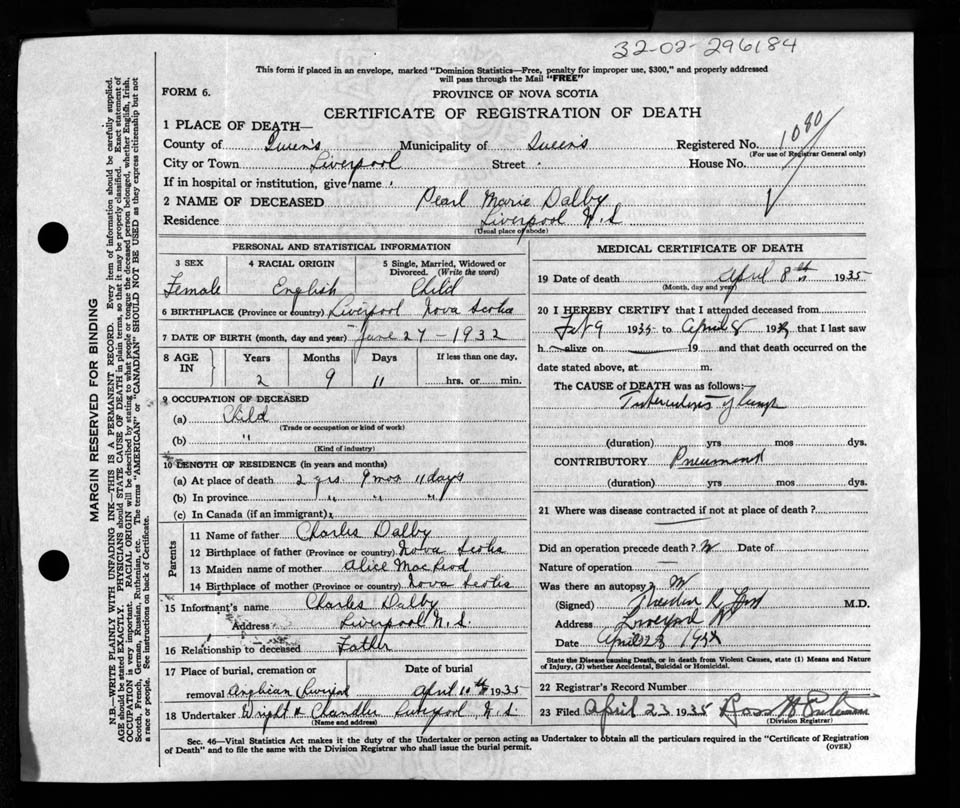 32-02-296184
This form if placed in an envelope, marked "Dominion Statistics—Free, penalty for improper use, $300," and properly addressed
will pass through the Mail "FREE"
FORM 6.
PROVINCE OF NOVA SCOTIA
CERTIFICATE OF REGISTRATION OF DEATH
1 PLACE OF DEATH—
County of Queens Municipality of Queens Registered No. 1080
(For use of Registrar General only)
City or Town Liverpool Street House No.
If in hospital or institution, give name
2 NAME OF DECEASED Pearl Marie Dalby
Residence Liverpool N.S
(Usual place of abode)
PERSONAL AND STATISTICAL INFORMATION
3 SEX 4 RACIAL ORIGIN 5 Single, Married, Widowed or Divorced. (Write the word)
Female English Child
6 BIRTHPLACE (Province or country) Liverpool Nova Scotia
7 DATE OF BIRTH (month, day and year) June 27 - 1932
8 AGE IN Years Months Days If less than one day,
2 9 11 hrs. or min.
9 OCCUPATION OF DECEASED
(a) Child
(Trade or occupation or kind of work)
(b) "
(Kind of industry)
10 LENGTH OF RESIDENCE (in years and months)
(a) At place of death 2 yrs. 9 mos 11 days
(b) In province " " "
(c) In Canada (if an immigrant)
Parents
11 Name of father Charles Dalby
12 Birthplace of father (Province or country) Nova Scotia
13 Maiden name of mother Alice MacLeod
14 Birthplace of mother (Province or country) Nova Scotia
15 Informant's name Charles Dalby
Address Liverpool N.S.
16 Relationship to deceased Father
17 Place of burial, cremation or Date of burial
removal Anglican Liverpool April 10th 1935
18 Undertaker Wright & Chandler Liverpool N.S
(Name and address)
MEDICAL CERTIFICATE OF DEATH
19 Date of death April 8th 1935
(Month, day and year)
20 I HEREBY CERTIFY that I attended deceased from
Feb 9 1935 to April 8 193 that I last saw
h alive on 19 and that death occurred on the
date stated above, at m.
The CAUSE of DEATH was as follows:
Tuberculosis of lungs
(duration) yrs mos dys.
CONTRIBUTORY Pneumonia
(duration) yrs mos dys.
21 Where was disease contracted if not at place of death?
Did an operation precede death? Date of
Nature of operation
Was there an autopsy?
(Signed) M.D.
Address Liverpool
Date April 23
State the Disease causing Death, or in death from Violent Causes, state (1) Means and Nature
of Injury, (2) whether Accidental, Suicidal or Homicidal.
22 Registrar's Record Number
23 Filed April 23 1935 Ross
(Division Registrar)
Sec. 46—Vital Statistics Act makes it the duty of the Undertaker or person acting as Undertaker to obtain all the particulars required in the "Certificate of Registration
of Death" and to file the same with the Division Registrar who shall issue the burial permit.
(OVER)
MARGIN RESERVED FOR BINDING
N.B.—WRITE PLAINLY WITH UNFADING INK—THIS IS A PERMANENT RECORD. Every item of information should be carefully supplied.
AGE should be stated EXACTLY. PHYSICIANS should STATE CAUSE OF DEATH in plain terms, so that it may be properly classified. Exact statement of
OCCUPATION is very important. RACIAL ORIGIN will be described by stating to what people or tongue the deceased person belonged, whether English, Irish,
Scotch, French, German, Russian, Ruthenian, etc. The terms "AMERICAN" or "CANADIAN" SHOULD NOT BE USED as they express citizenship but not
a race or people. See instructions on back of Certificate.